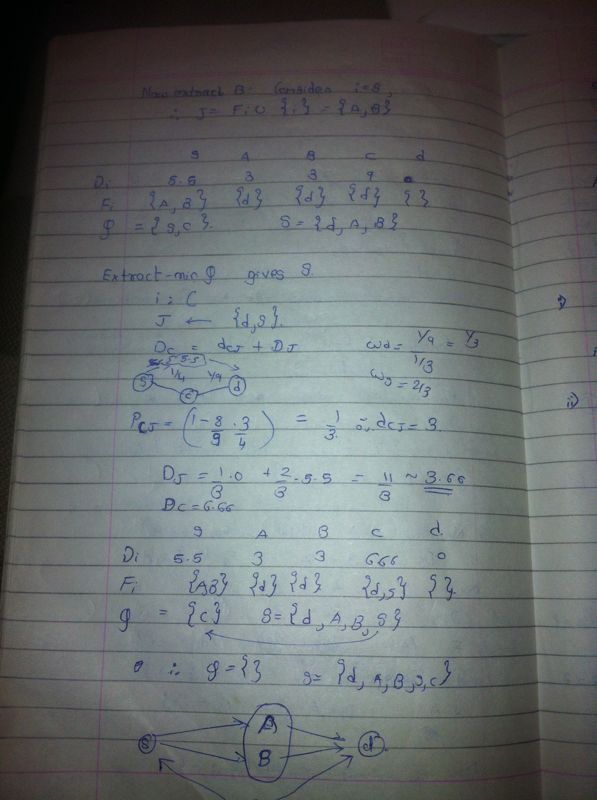 Now extract B. Consider i=S,
∴ J = Fi ∪ {i} = {A, B}
S A B C d
Di 5.5 3 3 9 0
Fi {A, B} {d} {d} {d} { }
Q = {S, C}. S = {d, A, B}
Extract-min Q gives S.
i = C
J ← {d, S}.
Dc = dcJ + DJ ωd = 1/9 / 1/3 = 1/3
5.5 ωs = 2/3
S 1/4 C 1/9 d
PCJ = (1 - 8/9 · 3/4) = 1/3 ∴ dcJ = 3.
DJ = 1/3 · 0 + 2/3 · 5.5 = 11/3 ~ 3.66
DC = 6.66
S A B C d
Di 5.5 3 3 6.66 0
Fi {A,B} {d} {d} {d,S} { }.
Q = {C} S = {d, A, B, S}
∴ Q = { } S = {d, A, B, S, C}
A
S d.
B
i)
ii)